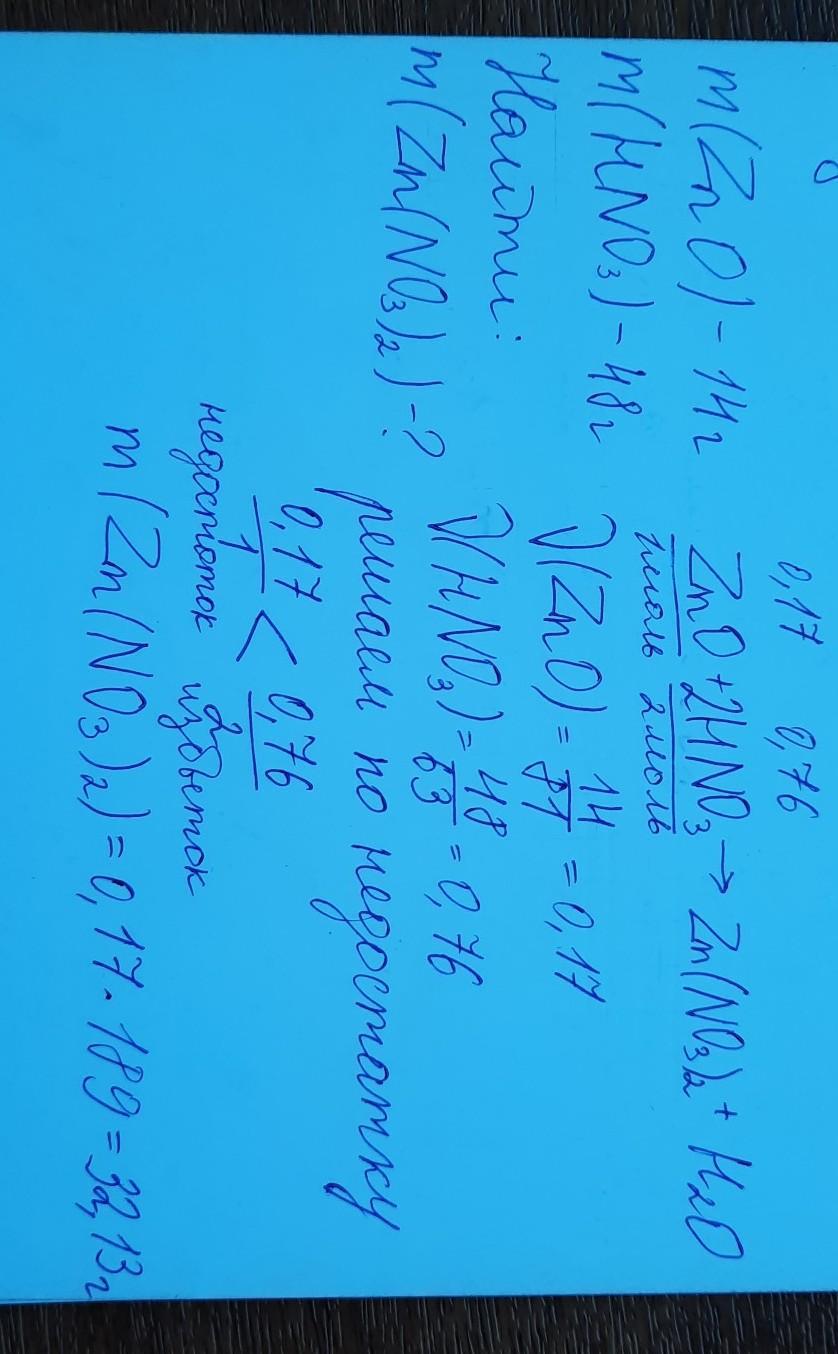 m(ZnO) - 14г
m(HNO₃) - 48г
Найти:
m(Zn(NO₃)₂) - ?
0,17 0,76
ZnO + 2HNO₃ → Zn(NO₃)₂ + H₂O
1моль 2моль
ν(ZnO) = 14/81 = 0,17
ν(HNO₃) = 48/63 = 0,76
решаем по недостатку
0,17/1 < 0,76/2
недостаток избыток
m(Zn(NO₃)₂) = 0,17 · 189 = 32,13г